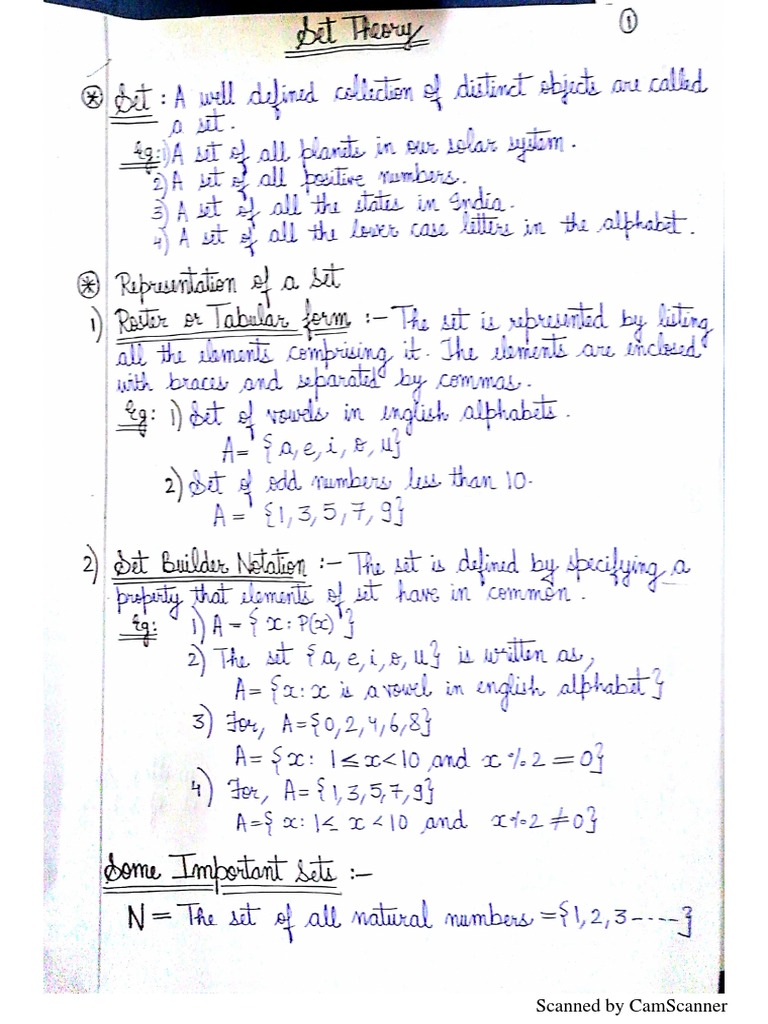 Set Theory
1
* Set : A well defined collection of distinct objects are called
a set.
Eg: 1) A set of all planets in our solar system.
2) A set of all positive numbers.
3) A set of all the states in India.
4) A set of all the lower case letters in the alphabet.
* Representation of a Set
1) Roster or Tabular form :- The set is represented by listing
all the elements comprising it. The elements are enclosed
with braces and separated by commas.
Eg: 1) Set of vowels in english alphabets.
A = {a, e, i, o, u}
2) Set of odd numbers less than 10.
A = {1, 3, 5, 7, 9}
2) Set Builder Notation :- The set is defined by specifying a
property that elements of set have in common.
Eg: 1) A = { x : P(x) }
2) The set {a, e, i, o, u} is written as,
A = {x : x is a vowel in english alphabet}
3) For, A = {0, 2, 4, 6, 8}
A = {x : 1 ≤ x < 10 and x % 2 = 0}
4) For, A = {1, 3, 5, 7, 9}
A = { x : 1 < x < 10 and x % 2 ≠ 0}
Some Important Sets :-
N = The set of all natural numbers = {1, 2, 3 -----}
Scanned by CamScanner